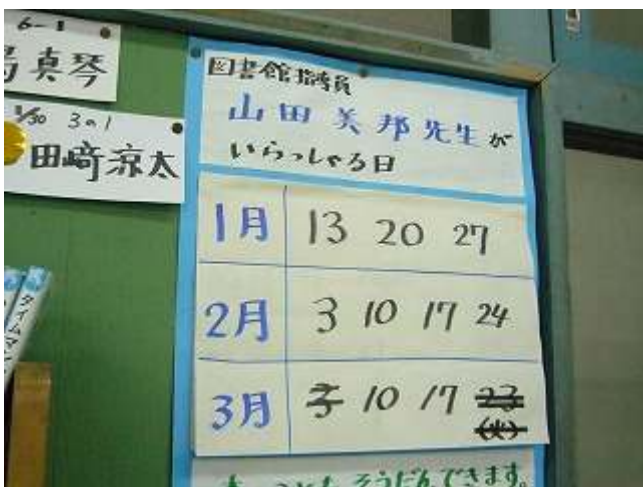 6-1
真琴
1/30 3の1
田崎涼太
図書館指導員
山田美邦先生が
いらっしゃる日
1月 13 20 27
2月 3 10 17 24
3月 3 10 17 23
(火)
タイムマシ
そうだんできます。